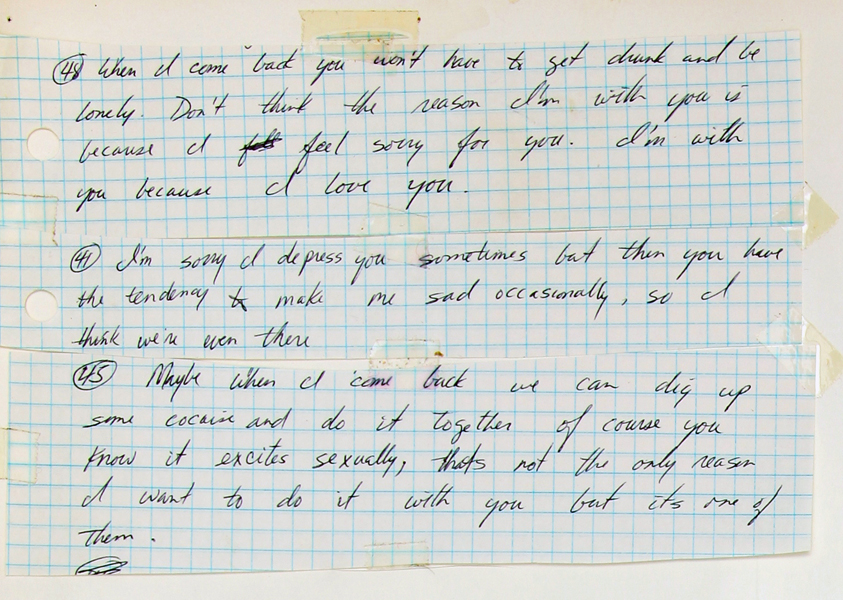 (48) When I come back you won't have to get drunk and be
lonely. Don't think the reason I'm with you is
because I feel sorry for you. I'm with
you because I love you.
(41) I'm sorry I depress you sometimes but then you have
the tendency to make me sad occasionally, so I
think we're even there
(45) Maybe when I come back we can dig up
some cocaine and do it together of course you
know it excites sexually, thats not the only reason
I want to do it with you but its one of
them.